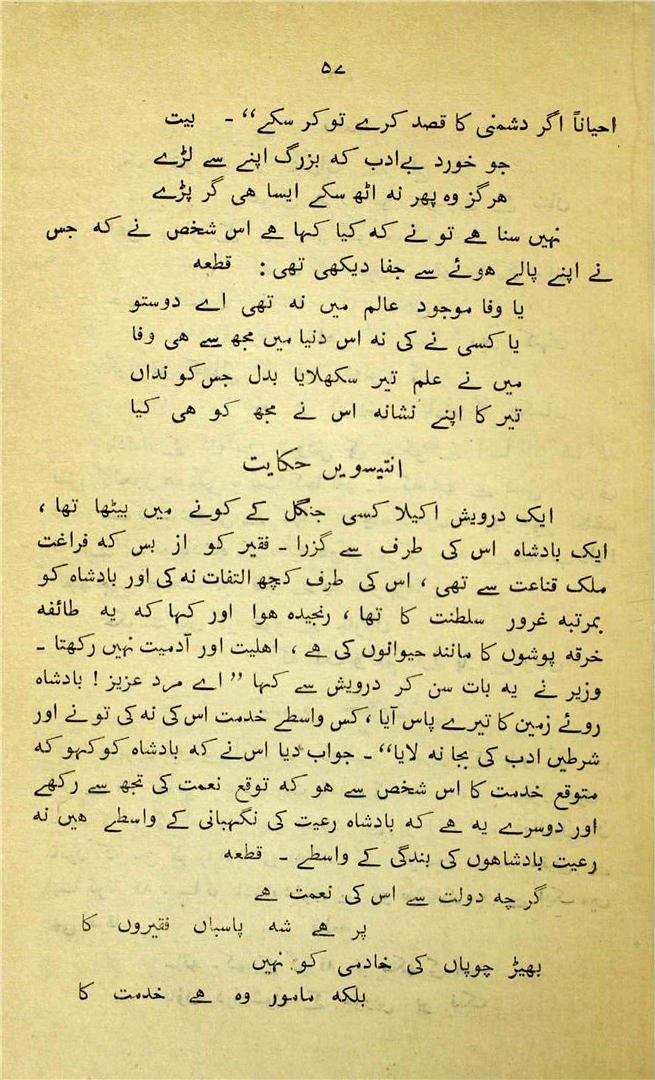 ۵۷
احیاناً اگر دشمنی کا قصد کرے تو کر سکے“ ۔ بیت
جو خورد بےادب کہ بزرگ اپنے سے لڑے
ھرگز وہ پھر نہ اٹھ سکے ایسا ھی گر پڑے
نہیں سنا ھے تو نے کہ کیا کہا ھے اس شخص نے کہ جس
نے اپنے پالے ھوئے سے جفا دیکھی تھی : قطعہ
یا وفا موجود عالم میں نہ تھی اے دوستو
یا کسی نے کی نہ اس دنیا میں مجھ سے ھی وفا
میں نے علم تیر سکھلایا بدل جس کو نداں
تیر کا اپنے نشانہ اس نے مجھ کو ھی کیا
انتیسویں حکایت
ایک درویش اکیلا کسی جنگل کے کونے میں بیٹھا تھا ،
ایک بادشاہ اس کی طرف سے گزرا ۔ فقیر کو از بس کہ فراغت
ملک قناعت سے تھی ، اس کی طرف کچھ التفات نہ کی اور بادشاہ کو
بمرتبہ غرور سلطنت کا تھا ، رنجیدہ ھوا اور کہا کہ یہ طائفہ
خرقہ پوشوں کا مانند حیوانوں کی ھے ، اھلیت اور آدمیت نہیں رکھتا ۔
وزیر نے یہ بات سن کر درویش سے کہا ”اے مرد عزیز ! بادشاہ
روئے زمین کا تیرے پاس آیا ، کس واسطے خدمت اس کی نہ کی تو نے اور
شرطیں ادب کی بجا نہ لایا“ ۔ جواب دیا اس نے کہ بادشاہ کو کہو کہ
متوقع خدمت کا اس شخص سے ھو کہ توقع نعمت کی تجھ سے رکھے
اور دوسرے یہ ھے کہ بادشاہ رعیت کی نگہبانی کے واسطے ھیں نہ
رعیت بادشاھوں کی بندگی کے واسطے ۔ قطعہ
گر چہ دولت سے اس کی نعمت ھے
پر ھے شہ پاسباں فقیروں کا
بھیڑ چوپاں کی خادمی کو نہیں
بلکہ مامور وہ ھے خدمت کا